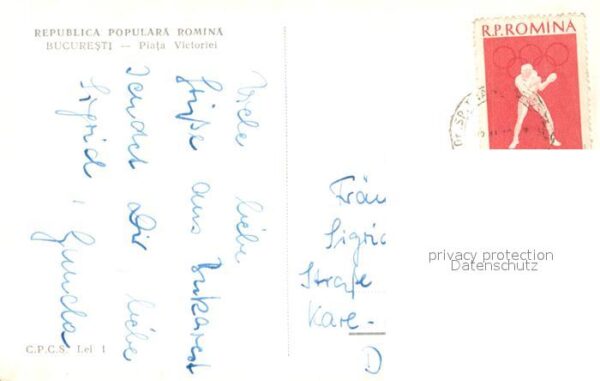 REPUBLICA POPULARA ROMINA
BUCUREȘTI — Piața Victoriei
Viele liebe
Grüße aus Bukarest
sendet Dir, liebe
Sigrid,
C.P.C.S. Lei 1
R.P.ROMINA
Sigrid
Straße
Kare
D
privacy protection
Datenschutz